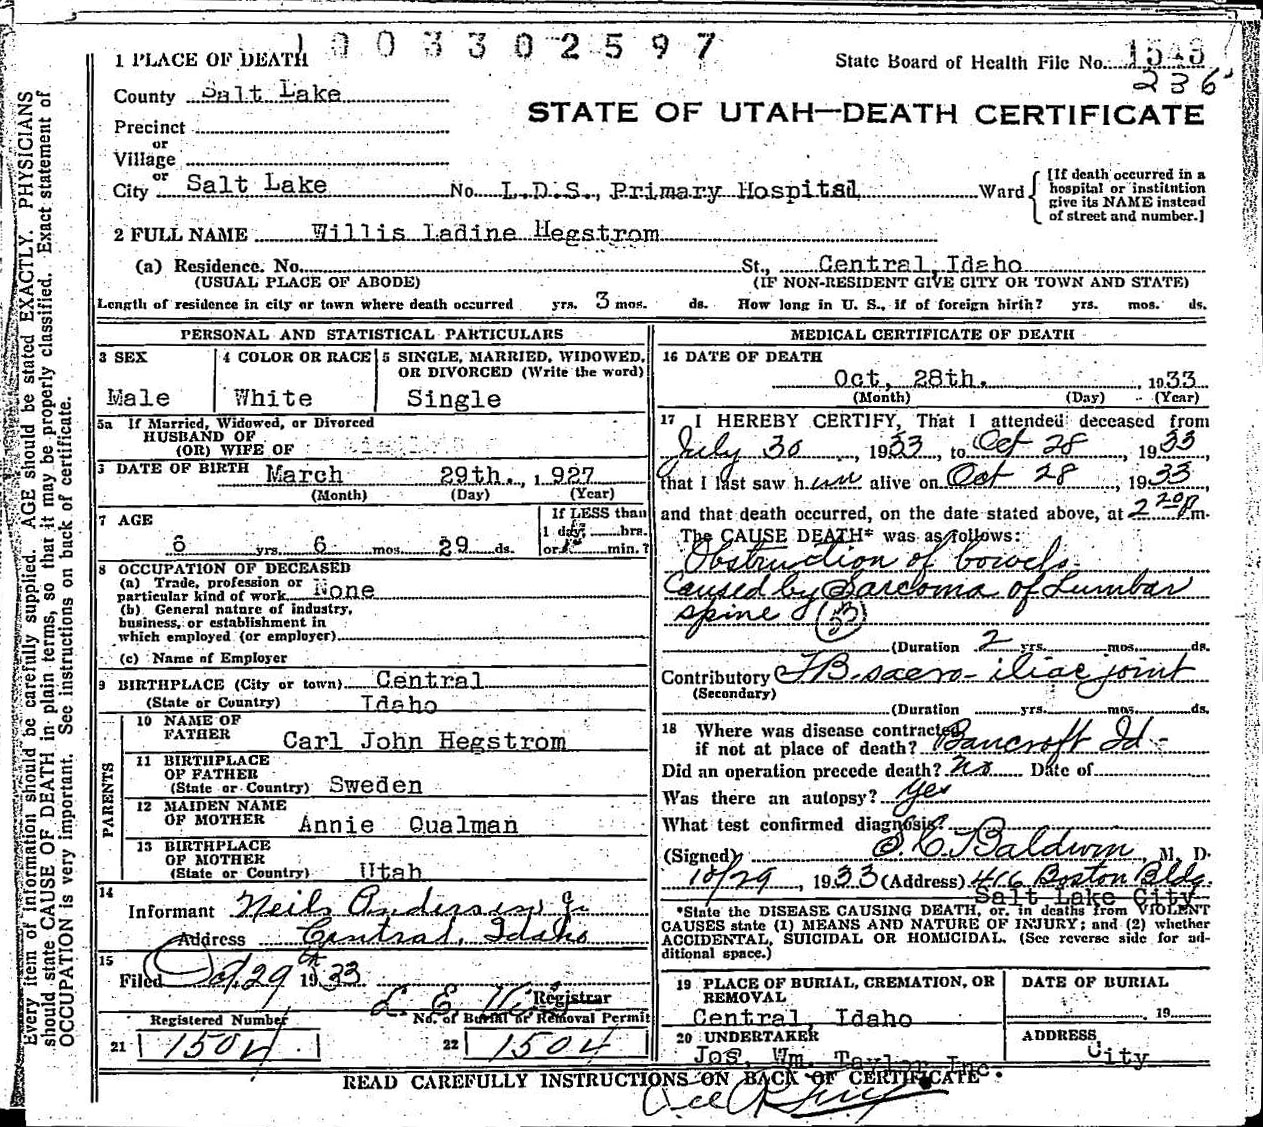 1 PLACE OF DEATH
1003302597
State Board of Health File No. 1543
236
County Salt Lake
STATE OF UTAH—DEATH CERTIFICATE
Precinct
or
Village
or
City Salt Lake No. L.D.S., Primary Hospital Ward
[If death occurred in a hospital or institution give its NAME instead of street and number.]
2 FULL NAME Willis Ladine Hegstrom
(a) Residence. No. St., Central, Idaho
(USUAL PLACE OF ABODE) (IF NON-RESIDENT GIVE CITY OR TOWN AND STATE)
Length of residence in city or town where death occurred yrs. 3 mos. ds. How long in U. S., if of foreign birth? yrs. mos. ds.
PERSONAL AND STATISTICAL PARTICULARS
3 SEX 4 COLOR OR RACE 5 SINGLE, MARRIED, WIDOWED,
OR DIVORCED (Write the word)
Male White Single
5a If Married, Widowed, or Divorced
HUSBAND OF
(OR) WIFE OF
DATE OF BIRTH March 29th., 1927
(Month) (Day) (Year)
7 AGE If LESS than
1 day, hrs.
6 yrs. 6 mos. 29 ds. or min.?
8 OCCUPATION OF DECEASED
(a) Trade, profession or
particular kind of work None
(b) General nature of industry,
business, or establishment in
which employed (or employer)
(c) Name of Employer
9 BIRTHPLACE (City or town) Central
(State or Country) Idaho
PARENTS
10 NAME OF
FATHER Carl John Hegstrom
11 BIRTHPLACE
OF FATHER
(State or Country) Sweden
12 MAIDEN NAME
OF MOTHER Annie Qualman
13 BIRTHPLACE
OF MOTHER
(State or Country) Utah
14
Informant Neils Anderson Jr.
Address Central, Idaho
15
Filed Oct. 29 1933
L. E. Registrar
Registered Number No. of Burial or Removal Permit
21 1504 22 1504
MEDICAL CERTIFICATE OF DEATH
16 DATE OF DEATH
Oct, 28th. , 1933
(Month) (Day) (Year)
17 I HEREBY CERTIFY, That I attended deceased from
July 30, 1933, to Oct 28, 1933,
that I last saw him alive on Oct 28, 1933,
and that death occurred, on the date stated above, at 2 20 P.m.
The CAUSE DEATH* was as follows:
Obstruction of bowels
caused by Sarcoma of Lumbar
spine (53)
(Duration 2 yrs. mos. ds.
Contributory TB sacro-iliac joint
(Secondary)
(Duration yrs. mos. ds.
18 Where was disease contracted
if not at place of death? Bancroft Id-
Did an operation precede death? No Date of
Was there an autopsy? Yes
What test confirmed diagnosis?
(Signed) S. C. Baldwin, M. D.
10/29, 1933 (Address) 416 Boston Bldg.
Salt Lake City
*State the DISEASE CAUSING DEATH, or, in deaths from VIOLENT
CAUSES state (1) MEANS AND NATURE OF INJURY; and (2) whether
ACCIDENTAL, SUICIDAL OR HOMICIDAL. (See reverse side for ad-
ditional space.)
19 PLACE OF BURIAL, CREMATION, OR
REMOVAL
Central, Idaho
DATE OF BURIAL
, 19
20 UNDERTAKER
Jos. Wm. Taylor Inc.
ADDRESS
City
READ CAREFULLY INSTRUCTIONS ON BACK OF CERTIFICATE
Every item of information should be carefully supplied. AGE should be stated EXACTLY. PHYSICIANS
should state CAUSE OF DEATH in plain terms, so that it may be properly classified. Exact statement of
OCCUPATION is very important. See instructions on back of certificate.